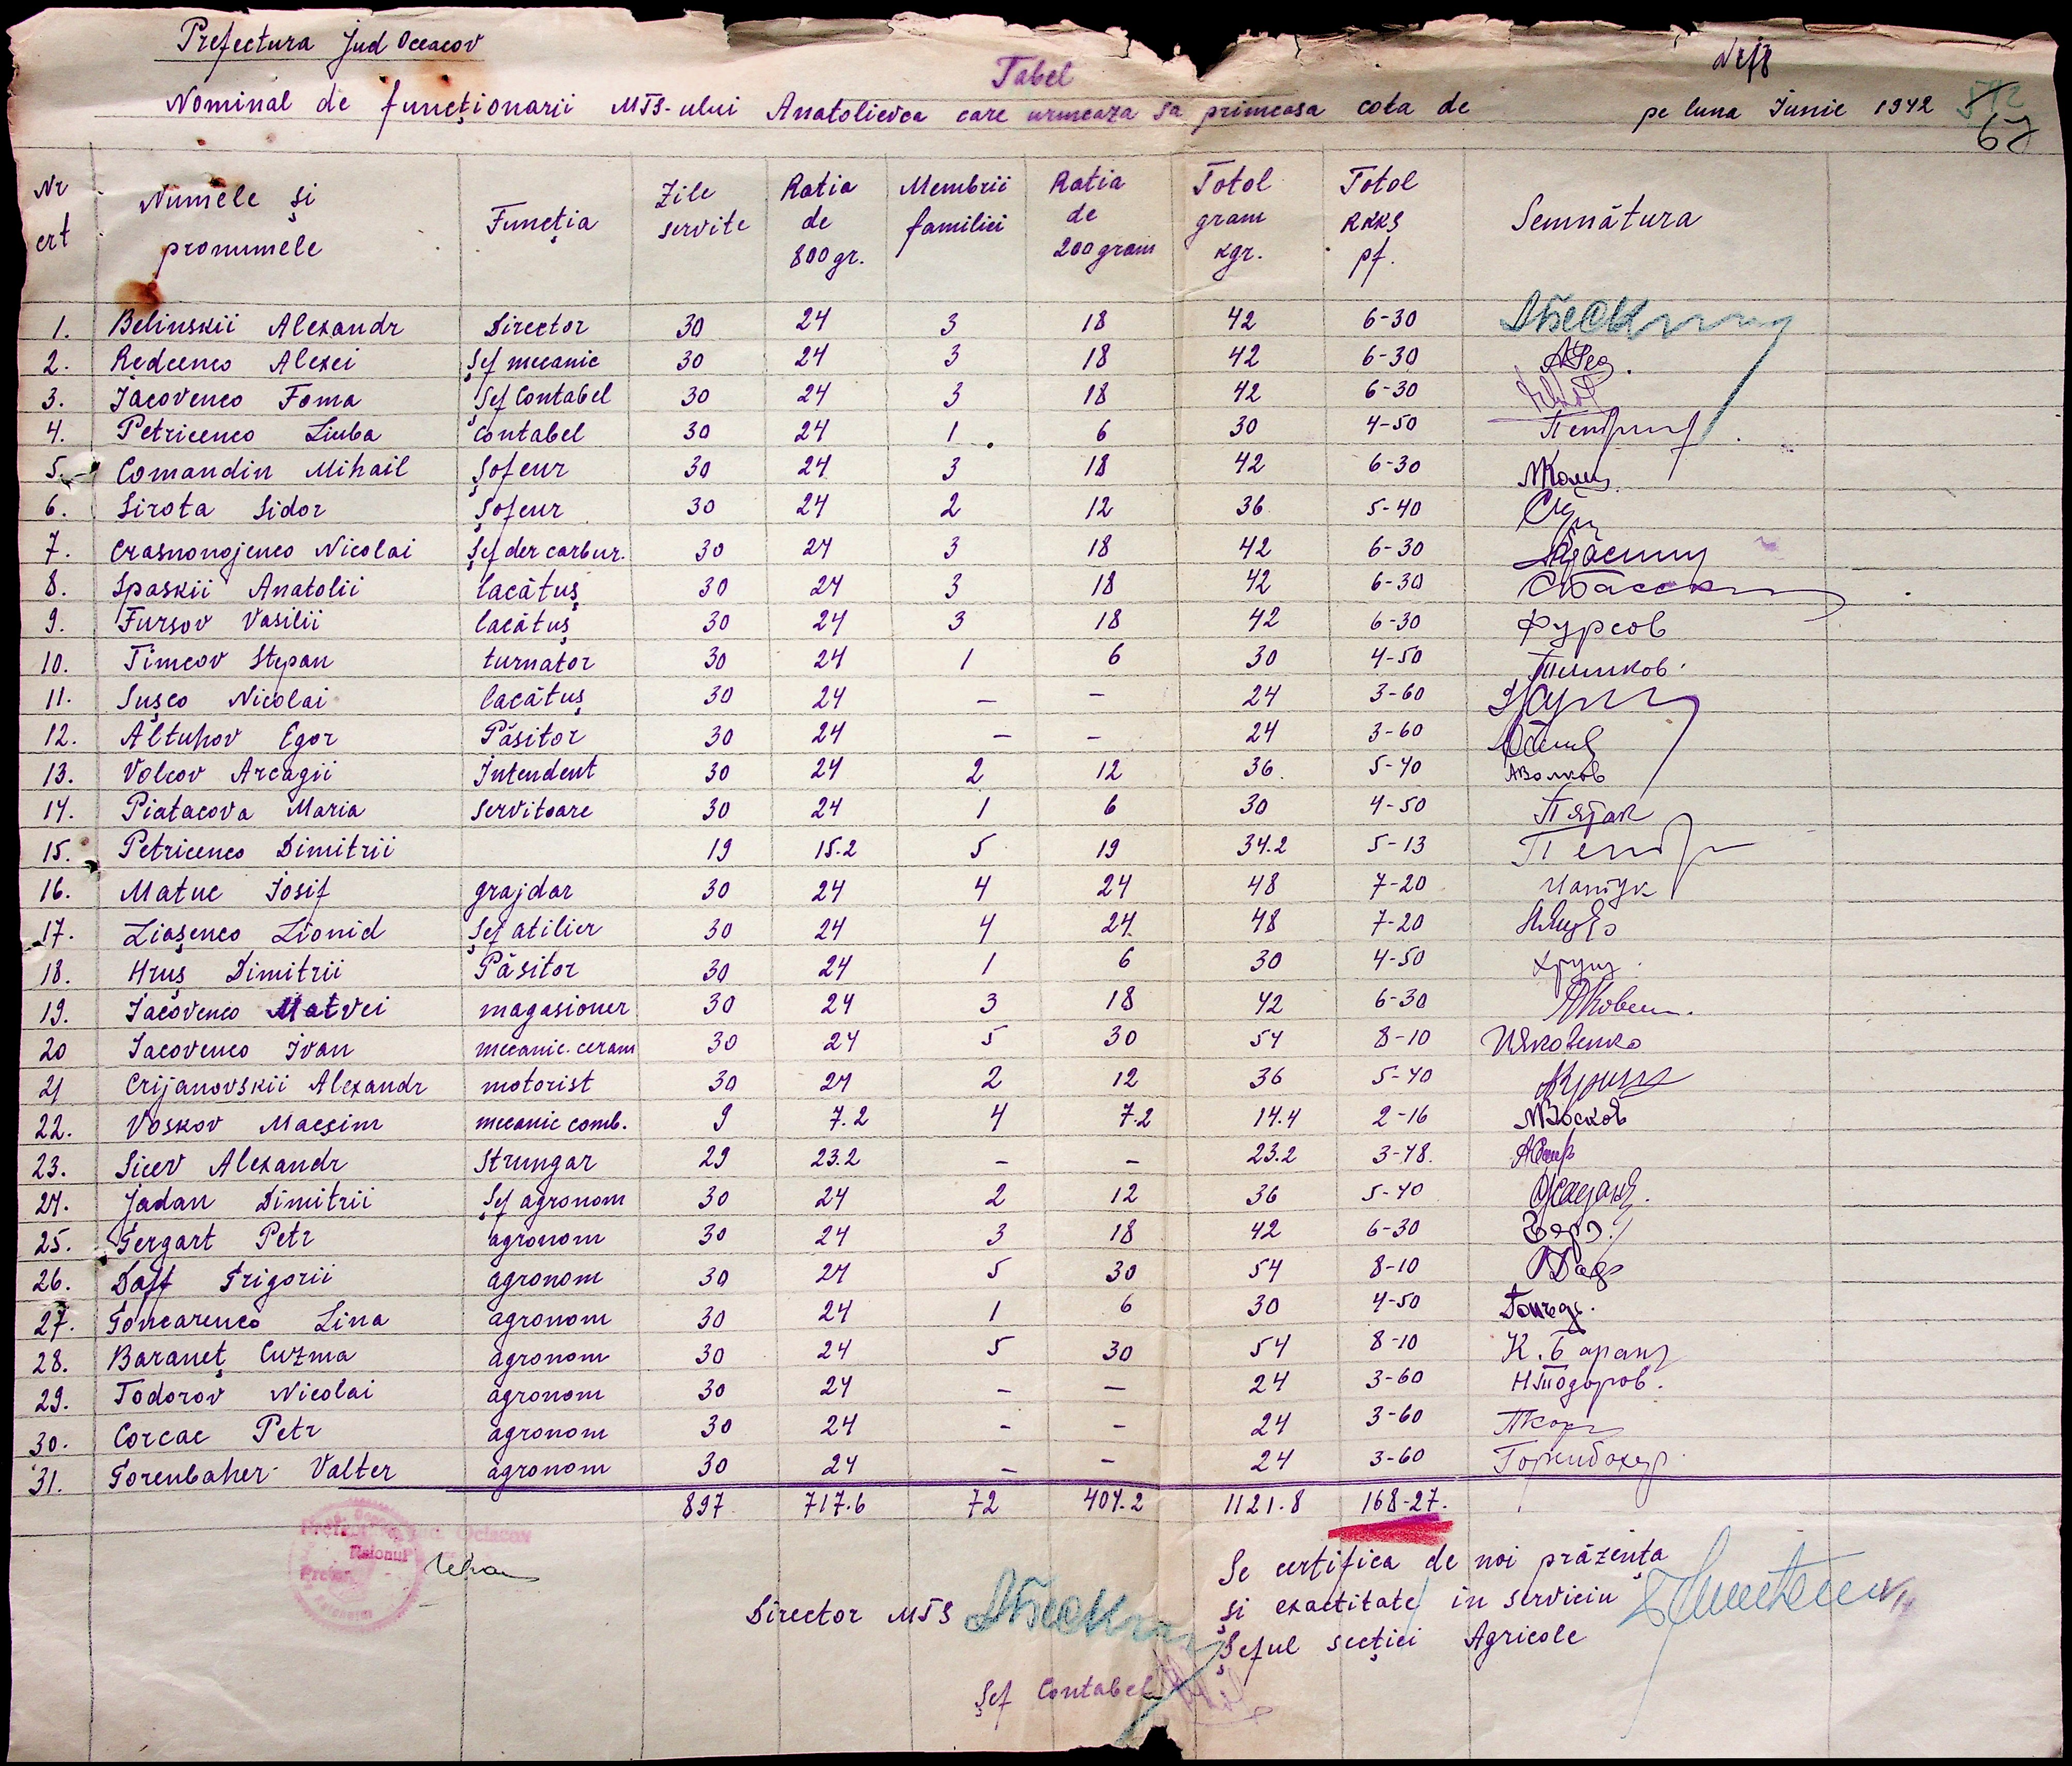 Prefectura Jud Oceacov
Tabel
Nominal de funcționarii MTS-ului Anatolievca care urmeaza sa primeasa cota de pe luna Iunie 1942
67
Nr crt Numele și pronumele Funcția Zile servite Ratia de 800 gr. Membrii familiei Ratia de 200 gram Totol gram kgr. Totol RKKS pf. Semnătura
1. Belinskii Alexandr Director 30 24 3 18 42 6-30
2. Redcenco Alexei Șef mecanic 30 24 3 18 42 6-30
3. Iacovenco Foma Șef Contabel 30 24 3 18 42 6-30
4. Petricenco Liuba Contabel 30 24 1 6 30 4-50
5. Comandin Mihail Șofeur 30 24 3 18 42 6-30
6. Sirota Sidor Șofeur 30 24 2 12 36 5-40
7. Crasnonojenco Nicolai Șef der carbur. 30 24 3 18 42 6-30
8. Spaskii Anatolii lacătuș 30 24 3 18 42 6-30
9. Fursov Vasilii lacătuș 30 24 3 18 42 6-30 Фурсов
10. Timcov Stepan turnator 30 24 1 6 30 4-50 Тимков
11. Sușco Nicolai lacătuș 30 24 — — 24 3-60
12. Altuhov Egor Păsitor 30 24 — — 24 3-60
13. Volcov Arcagii Intendent 30 24 2 12 36 5-40 АВолков
14. Piatacova Maria servitoare 30 24 1 6 30 4-50 Пятак
15. Petricenco Dimitrii 19 15.2 5 19 34.2 5-13
16. Matuc Iosif grajdar 30 24 4 24 48 7-20 Матук
17. Liașenco Lionid Șef atilier 30 24 4 24 48 7-20
18. Hruș Dimitrii Păsitor 30 24 1 6 30 4-50 Хрущ
19. Iacovenco Matvei magasioner 30 24 3 18 42 6-30
20 Iacovenco Ivan mecanic. ceram 30 24 5 30 54 8-10 ИЯковенко
21 Crijanovskii Alexandr motorist 30 24 2 12 36 5-40
22. Voskov Macsim mecanic comb. 9 7.2 4 7.2 14.4 2-16 МВосков
23. Sicev Alexandr Strungar 29 23.2 — — 23.2 3-48.
24. Jadan Dimitrii Șef agronom 30 24 2 12 36 5-40
25. Gergart Petr agronom 30 24 3 18 42 6-30
26. Daff Grigorii agronom 30 24 5 30 54 8-10
27. Goncarenco Lina agronom 30 24 1 6 30 4-50
28. Baraneț Cuzma agronom 30 24 5 30 54 8-10 К. Баранц
29. Todorov Nicolai agronom 30 24 — — 24 3-60 НТодоров.
30. Corcac Petr agronom 30 24 - - 24 3-60
31. Gorenbaher Valter agronom 30 24 — — 24 3-60 Горенбахер
897 717.6 72 404.2 1121.8 168-27.
Prefectura Jud. Ociacov
Raionul
Se certifica de noi prăzența
și exactitate in serviciu
Șeful secției Agricole
Director MTS
Șef Contabel